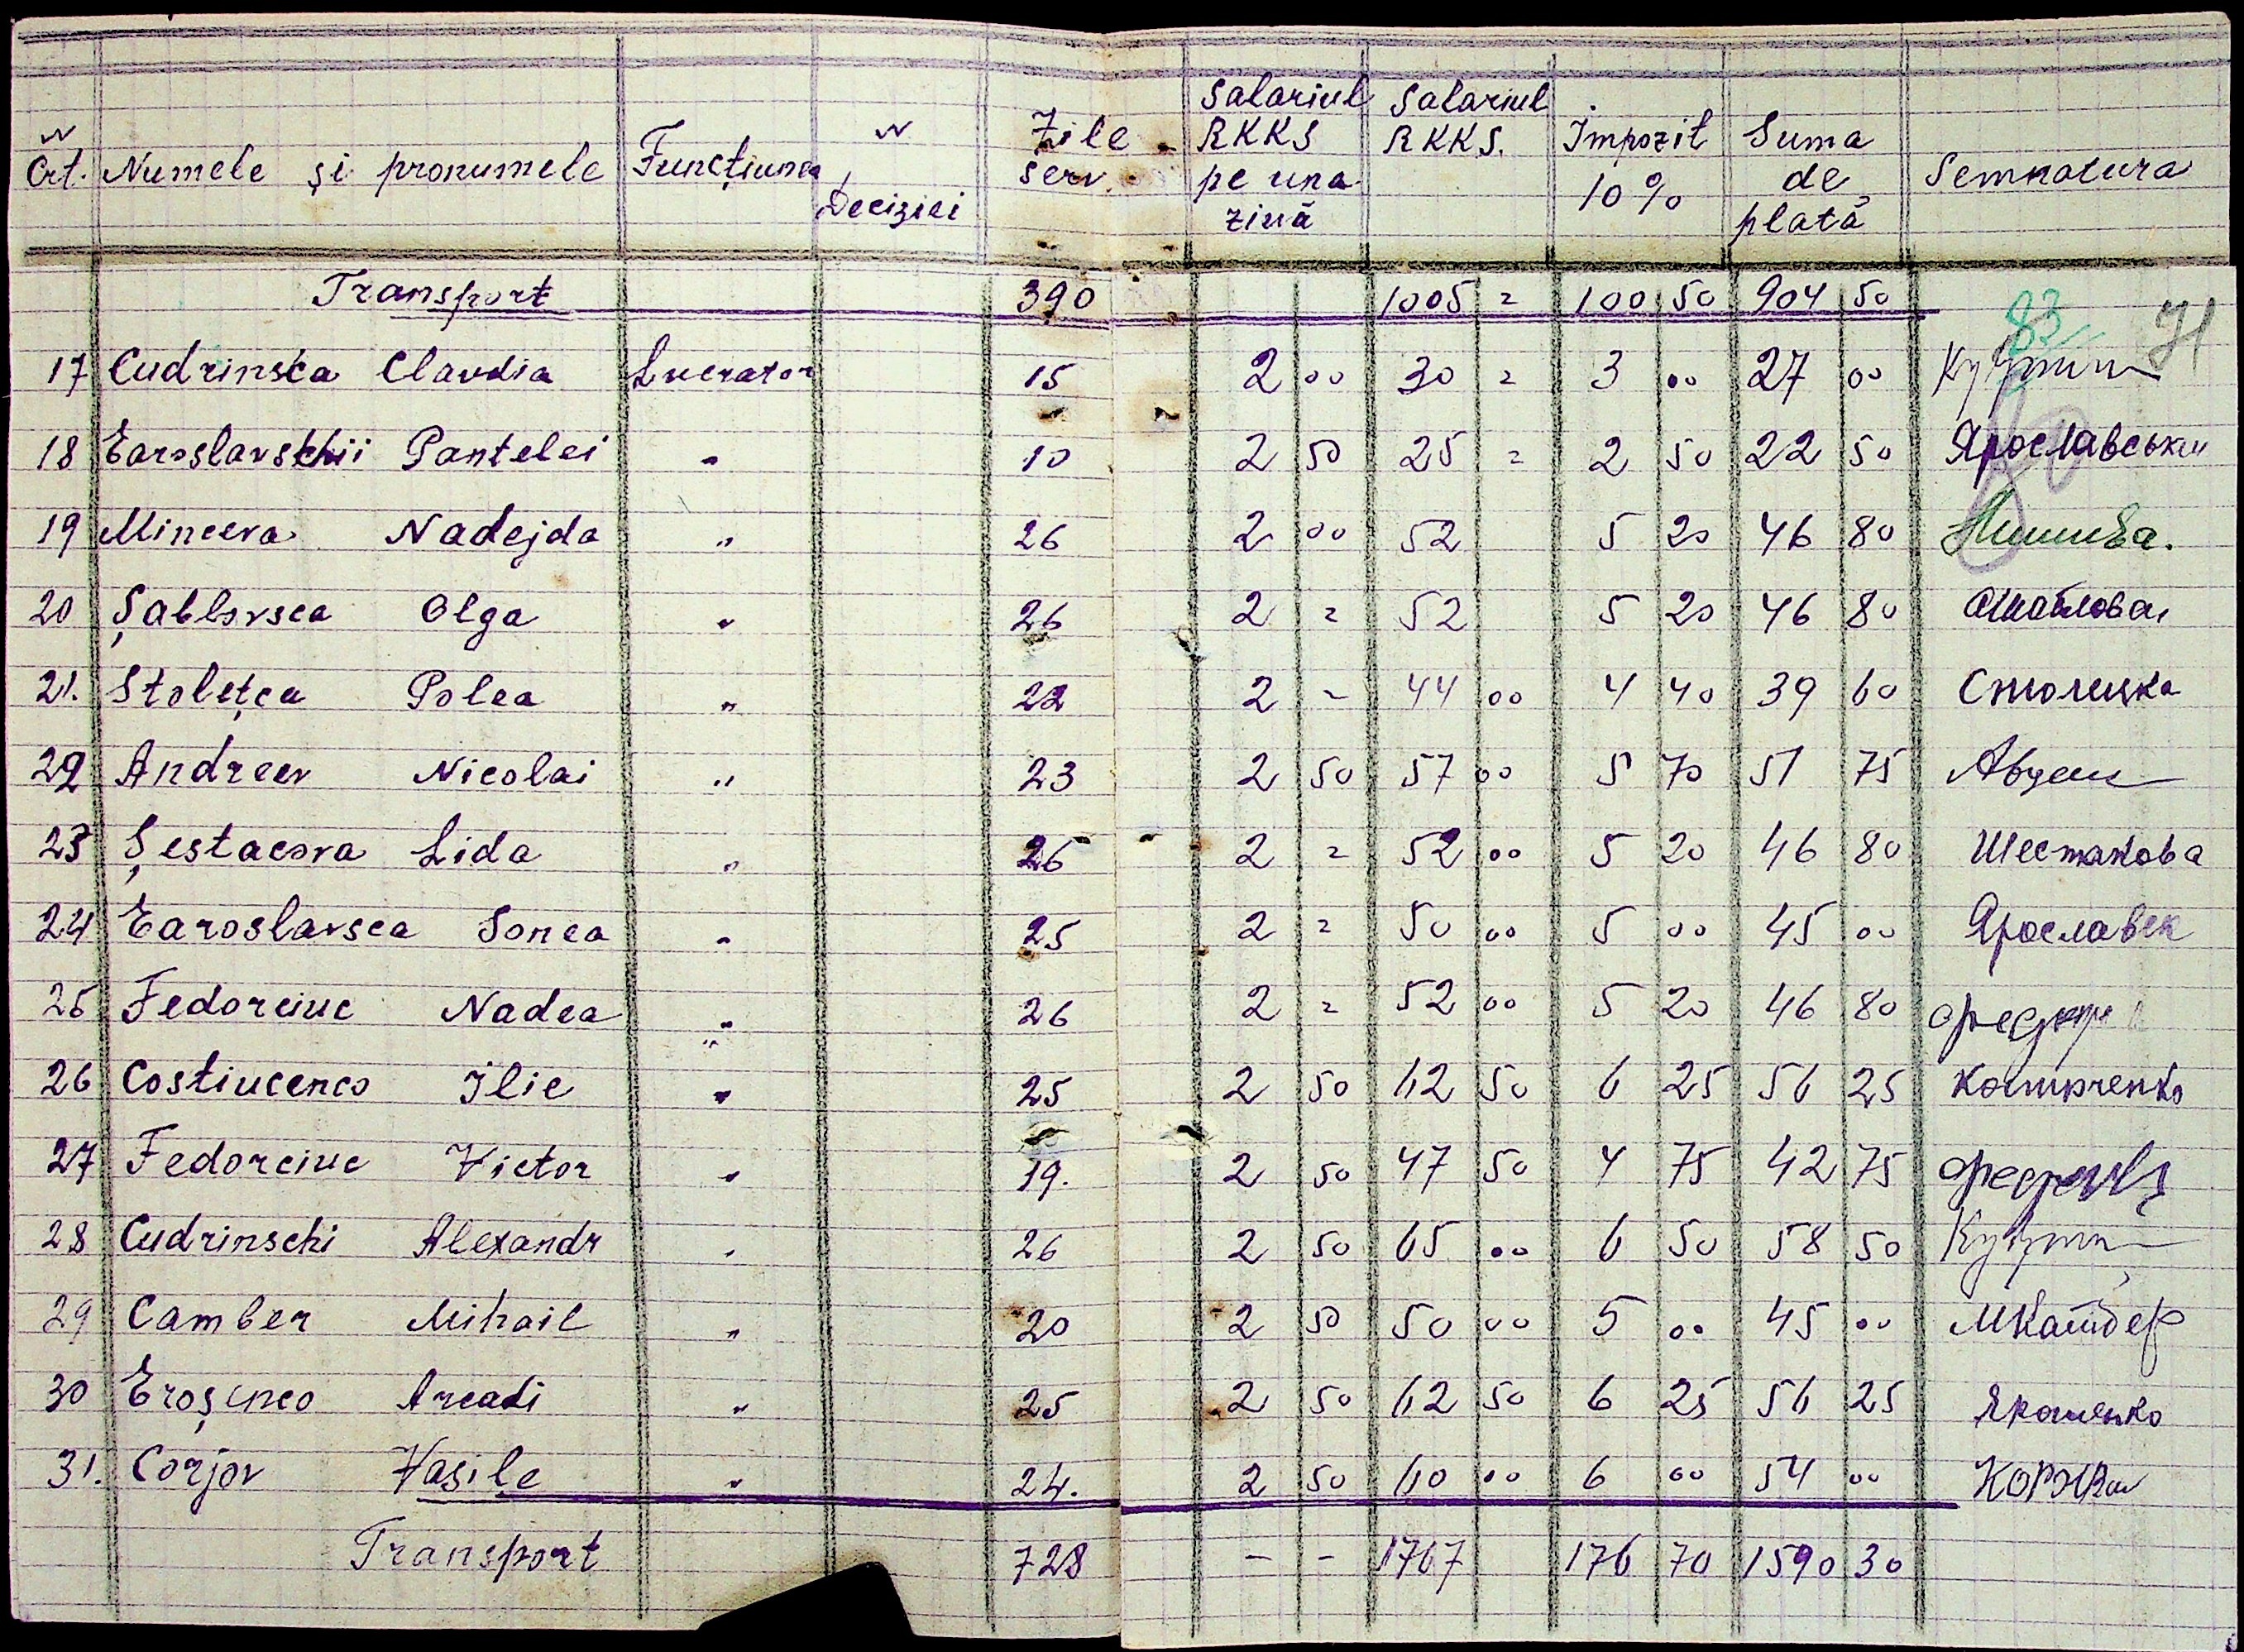 N Crt. Numele și pronumele Funcțiunea N Deciziei Zile serv. Salariul RKKS pe una ziuă Salariul RKKS. Impozit 10% Suma de plată Semnatura
Transport 390 1005 = 100 50 904 50
83 71
17 Cudrinsca Claudia Lucrator 15 2 00 30 = 3 00 27 00
80
18 Earoslavschii Pantelei " 10 2 50 25 = 2 50 22 50 Ярославський
19 Mineeva Nadejda " 26 2 00 52 5 20 46 80
20 Șablovsca Olga " 26 2 = 52 5 20 46 80
21. Stolețca Polea " 22 2 - 44 00 4 40 39 60 Столицка
22 Andreev Nicolai " 23 2 50 57 00 5 70 51 75
23 Șestacova Lida " 26 2 = 52 00 5 20 46 80 Шестакова
24 Earoslavsca Sonea " 25 2 = 50 00 5 00 45 00 Ярославск
25 Fedorciuc Nadea " 26 2 = 52 00 5 20 46 80
26 Costiucenco Ilie " 25 2 50 62 50 6 25 56 25 Костюченко
27 Fedorciuc Victor " 19. 2 50 47 50 4 75 42 75
28 Cudrinschi Alexandr " 26 2 50 65 00 6 50 58 50
29 Camber Mihail " 20 2 50 50 00 5 00 45 00 МКамбер
30 Eroșenco Arcadi " 25 2 50 62 50 6 25 56 25 Ярошенко
31. Corjov Vasile " 24. 2 50 60 00 6 00 54 00
Transport 728 - - 1767 176 70 1590 30